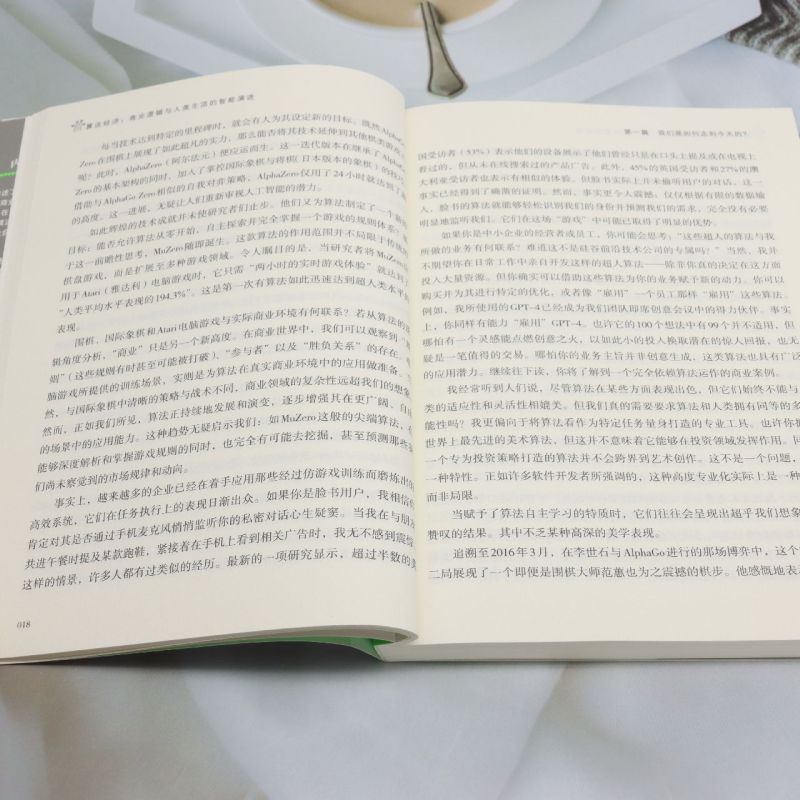 算法经济：商业逻辑与人类生活的智能演进
每当技术达到特定的里程碑时，就会有人为其设定新的目标。既然AlphaGo
Zero在围棋上展现了如此超凡的实力，那么能否将其技术延伸到其他棋类游戏
呢？此时，AlphaZero（阿尔法元）便应运而生。这一迭代版本在继承了AlphaGo
Zero的基本架构的同时，加入了掌控国际象棋与将棋（日本版本的象棋）的技
借助与AlphaGo Zero相似的自我对弈策略，AlphaZero仅用了24小时就达到了
的高度。这一进展，无疑让人们重新审视人工智能的潜力。
如此辉煌的技术成就并未使研究者们止步。他们又为算法制定了一个新的
目标：能否允许算法从零开始，自主探索并完全掌握一个游戏的规则体系？基
于这一前瞻性思考，MuZero随即诞生。这款算法的作用范围并不局限于传统
棋盘游戏，而是扩展至多种游戏领域。令人瞩目的是，当研究者将MuZero
用于Atari（雅达利）电脑游戏时，它只需“两小时的实时游戏体验”就达到了
“人类平均水平表现的194.3%”。这是第一次有算法如此迅速达到超人类水平的
表现。
围棋、国际象棋和Atari电脑游戏与实际商业环境有何联系？若从算法的
辑角度分析，“商业”只是另一个新高度。在商业世界中，我们可以观察到“规
则”（这些规则有时甚至可能被打破）、“参与者”以及“胜负关系”的存在。
脑游戏所提供的训练场景，实则是为算法在真实商业环境中的应用做准备。当
然，与国际象棋中清晰的策略与战术不同，商业领域的复杂性远超我们的想象
然而，正如我们所见，算法正持续地发展和演变，逐步增强其在更广阔、自由
的场景中的应用能力。这种趋势无疑启示我们：如MuZero这般的尖端算法，
能够深度解析和掌握游戏规则的同时，也完全有可能去挖掘，甚至预测那些
们尚未察觉到的市场规律和动向。
事实上，越来越多的企业已经在着手应用那些经过仿游戏训练而磨炼出的
高效系统，它们在任务执行上的表现日渐出众。如果你是脸书用户，我相信你
肯定对其是否通过手机麦克风悄悄监听你的私密对话心生疑窦。当我在与朋友
共进午餐时提及某款跑鞋，紧接着在手机上看到相关广告时，我无不感到震惊
这样的情景，许多人都有过类似的经历。最新的一项研究显示，超过半数的美
018
第一篇 我们是如何走到今天的？
国受访者（53%）表示他们的设备展示了他们曾经只是在口头上提及或在电视上
看过的，但从未在线搜索过的产品广告。此外，45%的英国受访者和27%的澳
大利亚受访者也表示有相似的体验。但脸书实际上并未偷听用户的对话，这一
事实已经得到了确凿的证明。然而，事实更令人震撼，仅仅根据有限的数据输
入，脸书的算法就能够轻松识别我们的身份并预测我们的需求，完全没有必要
明显地监听我们。它们在这场“游戏”中可能已取得了明显的优势。
如果你是中小企业的经营者或员工，你可能会思考，“这些超人的算法与我
所做的业务有何联系？难道这不是硅谷前沿技术公司的专属吗？”当然，我并
不期望你在日常工作中亲自开发这样的超人算法——除非你真的决定在这方面
投入大量资源。但你确实可以借助这些算法为你的业务赋予新的动力。你可以
购买并为其进行特定的优化，或者像“雇用”一个员工那样“雇用”这些算法。
例如，我所使用的GPT-4已经成为我们团队即席创意会议中的得力伙伴。事实
上，你同样有能力“雇用”GPT-4。也许它的100个想法中有99个并不适用，但
哪怕有一个灵感能点燃创意之火，以如此小的投入换取潜在的惊人回报，也无
疑是一笔值得的交易。哪怕你的业务主旨并非创意生成，这类算法也具有广泛
的应用潜力。继续往下读，你将了解到一个完全依赖算法运作的商业案例。
我经常听到人们说，尽管算法在某些方面表现出色，但它们始终不能与
类的适应性和灵活性相媲美。但我们真的需要要求算法和人类拥有同等的多
能性吗？我更偏向于将算法看作为特定任务量身打造的专业工具。也许你拥
世界上最先进的美术算法，但这并不意味着它能够在投资领域发挥作用。同
一个专为投资策略打造的算法并不会跨界到艺术创作。这不是一个问题，
一种特性。正如许多软件开发者所强调的，这种高度专业化实际上是一种
而非局限。
当赋予了算法自主学习的特质时，它们往往会呈现出超乎我们想象
赞叹的结果。其中不乏某种高深的美学表现。
追溯至2016年3月，在李世石与AlphaGo进行的那场博弈中，这个
二局展现了一个即便是围棋大师范蕙也为之震撼的棋步。他感慨地表